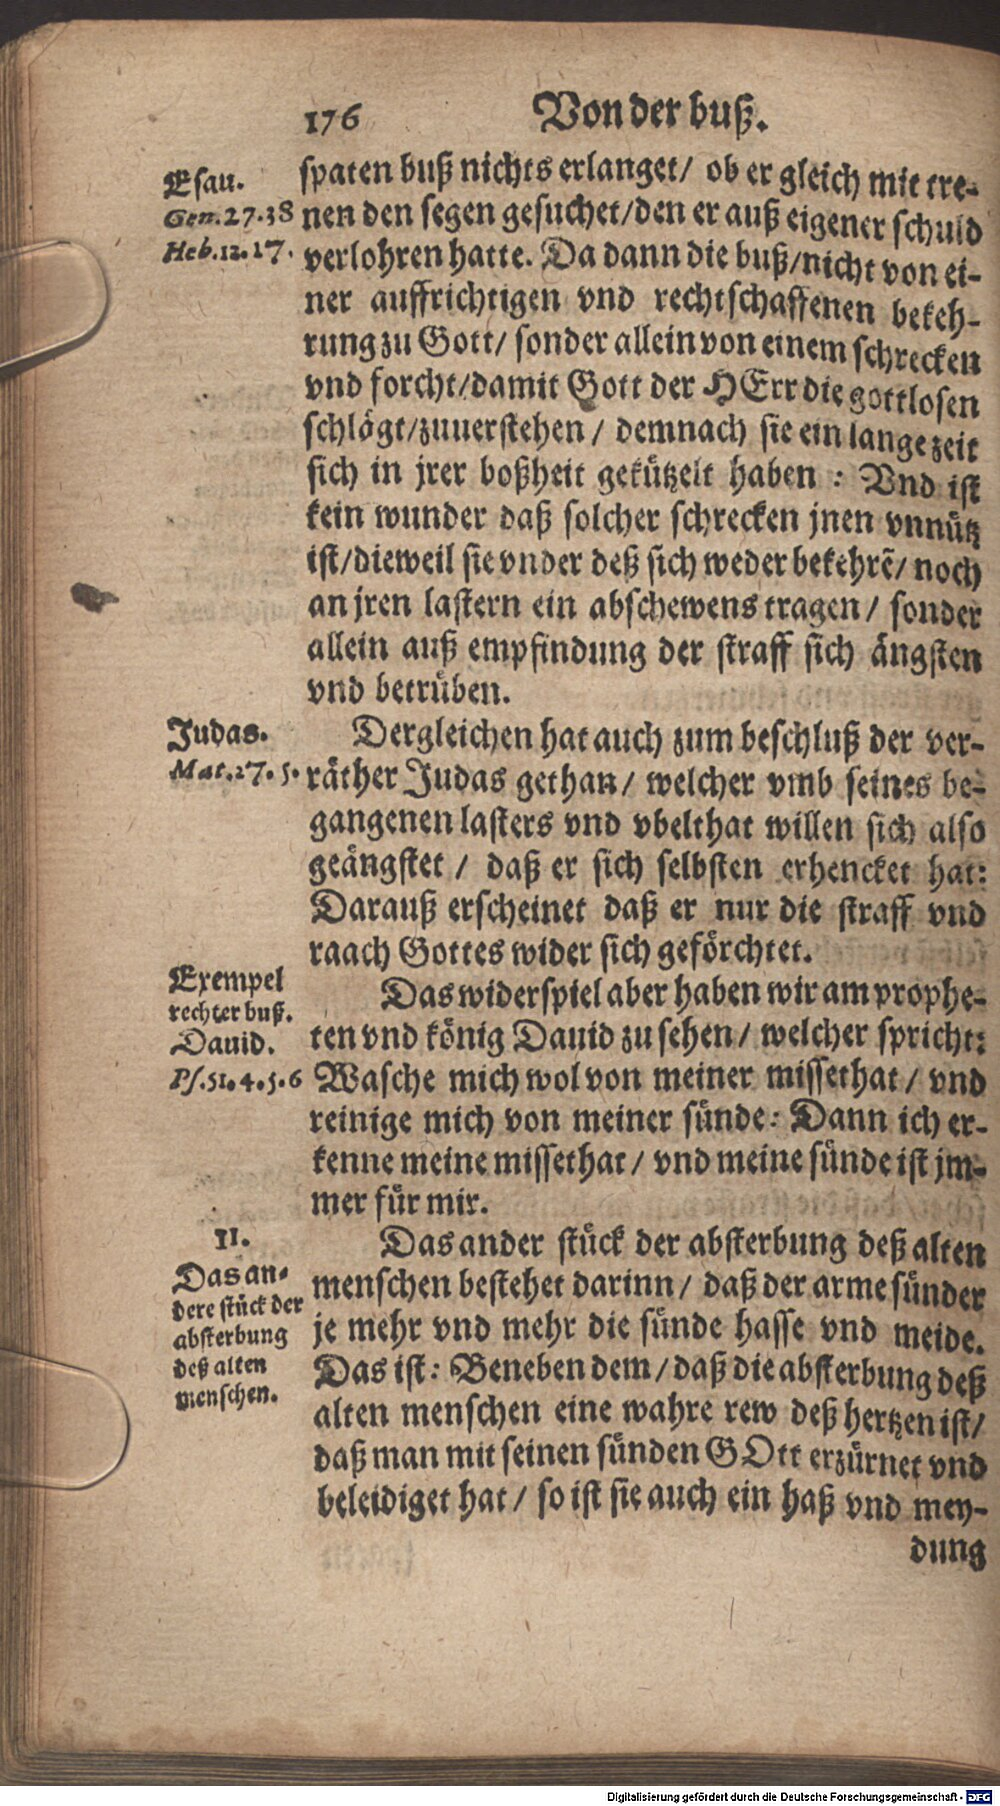 176 Von der buß.
Esau.
Gen. 27. 38
Heb. 12. 17.
spaten buß nichts erlanget/ ob er gleich mit tre-
nen den segen gesuchet/den er auß eigener schuld
verlohren hatte. Da dann die buß/nicht von ei-
ner auffrichtigen vnd rechtschaffenen bekeh-
rung zu Gott/ sonder allein von einem schrecken
vnd forcht/damit Gott der HErr die gottlosen
schlägt/zuuerstehen/ demnach sie ein lange zeit
sich in jrer boßheit gekützelt haben : Vnd ist
kein wunder daß solcher schrecken jnen vnnütz
ist/dieweil sie vnder deß sich weder bekehrẽ/ noch
an jren lastern ein abschewens tragen/ sonder
allein auß empfindung der straff sich ängsten
vnd betrüben.
Judas.
Mat. 27. 5.
Dergleichen hat auch zum beschluß der ver-
räther Judas gethan/ welcher vmb seines be-
gangenen lasters vnd vbelthat willen sich also
geängstet / daß er sich selbsten erhencket hat:
Darauß erscheinet daß er nur die straff vnd
raach Gottes wider sich geförchtet.
Exempel
rechter buß.
Dauid.
Ps. 51. 4. 5. 6
Das widerspiel aber haben wir am prophe-
ten vnd könig Dauid zu sehen/ welcher spricht:
Wasche mich wol von meiner missethat/ vnd
reinige mich von meiner sünde: Dann ich er-
kenne meine missethat/ vnd meine sünde ist jm-
mer für mir.
II.
Das an-
dere stück der
absterbung
deß alten
menschen.
Das ander stück der absterbung deß alten
menschen bestehet darinn/ daß der arme sünder
je mehr vnd mehr die sünde hasse vnd meide.
Das ist: Beneben dem/ daß die absterbung deß
alten menschen eine wahre rew deß hertzen ist/
daß man mit seinen sünden GOtt erzürnet vnd
beleidiget hat/ so ist sie auch ein haß vnd mey-
dung
Digitalisierung gefördert durch die Deutsche Forschungsgemeinschaft - DFG